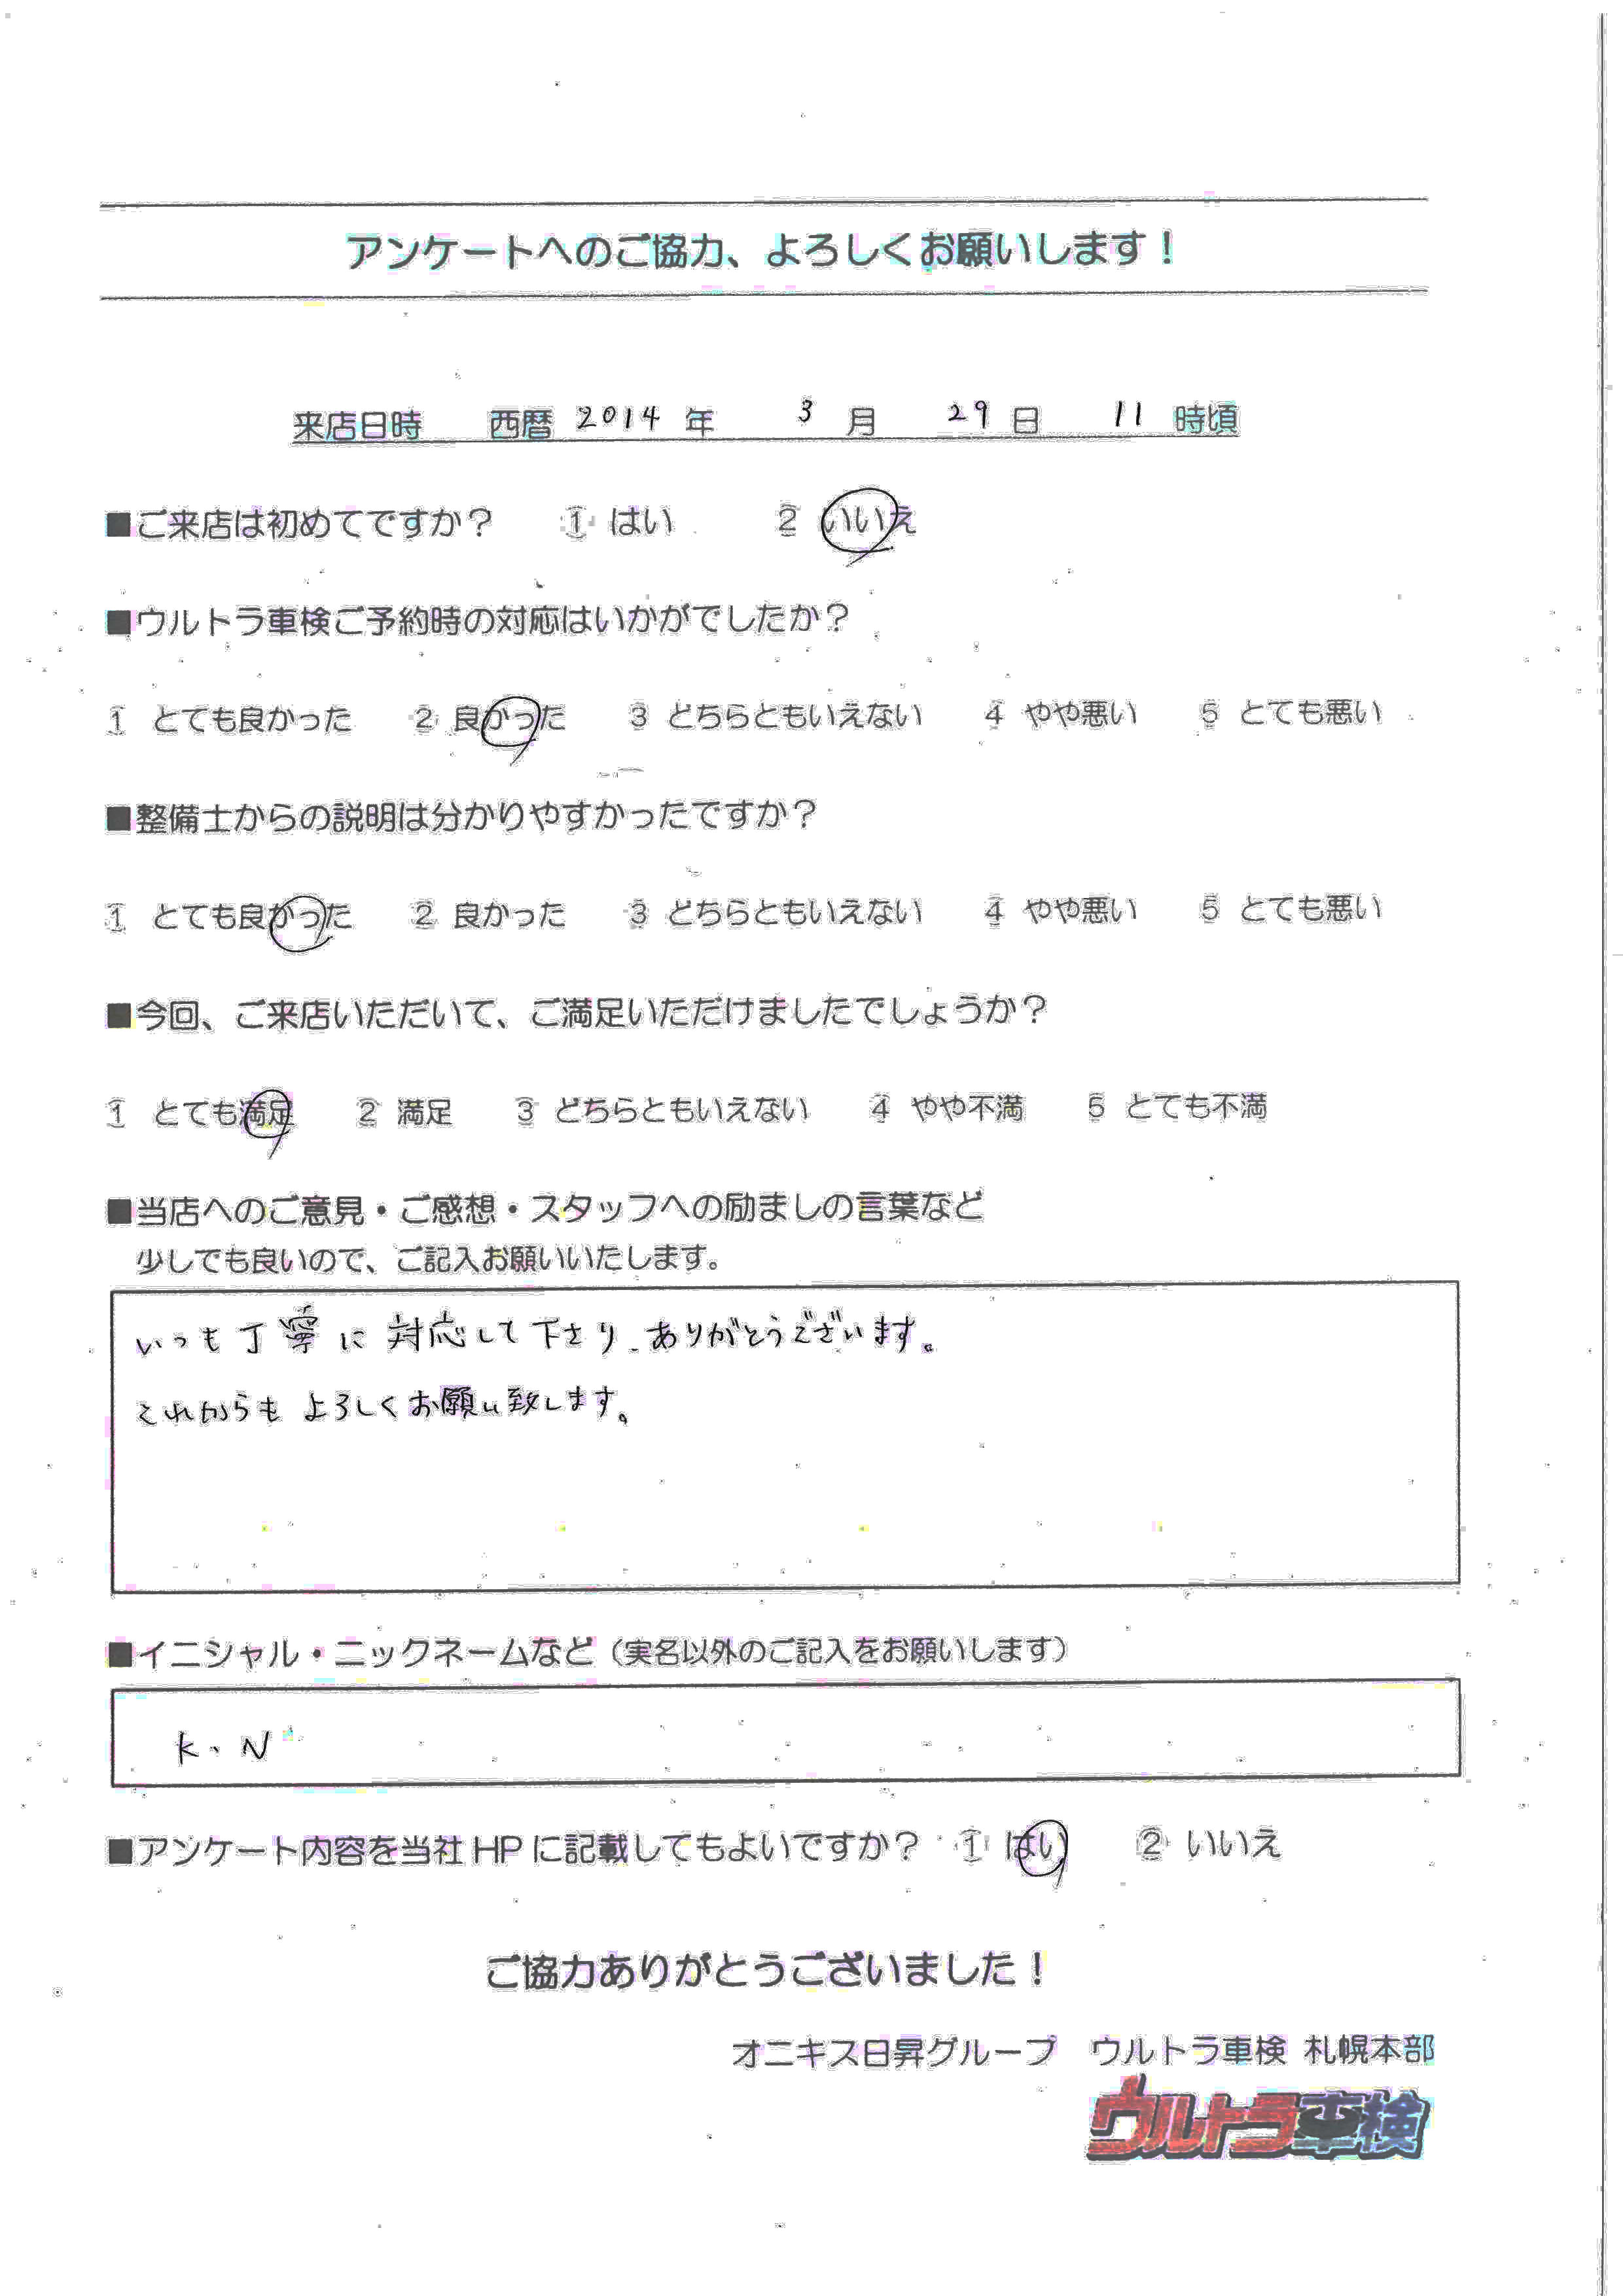 アンケートへのご協力、よろしくお願いします！
来店日時 西暦 2014 年 3 月 29 日 11 時頃
■ご来店は初めてですか？ 1 はい 2 いいえ
■ウルトラ車検ご予約時の対応はいかがでしたか？
1 とても良かった 2 良かった 3 どちらともいえない 4 やや悪い 5 とても悪い
■整備士からの説明は分かりやすかったですか？
1 とても良かった 2 良かった 3 どちらともいえない 4 やや悪い 5 とても悪い
■今回、ご来店いただいて、ご満足いただけましたでしょうか？
1 とても満足 2 満足 3 どちらともいえない 4 やや不満 5 とても不満
■当店へのご意見・ご感想・スタッフへの励ましの言葉など
少しでも良いので、ご記入お願いいたします。
いつも丁寧に対応して下さり、ありがとうございます。
これからもよろしくお願い致します。
■イニシャル・ニックネームなど（実名以外のご記入をお願いします）
K・N
■アンケート内容を当社HPに記載してもよいですか？ 1 はい 2 いいえ
ご協力ありがとうございました！
オニキス日昇グループ ウルトラ車検 札幌本部
ウルトラ車検